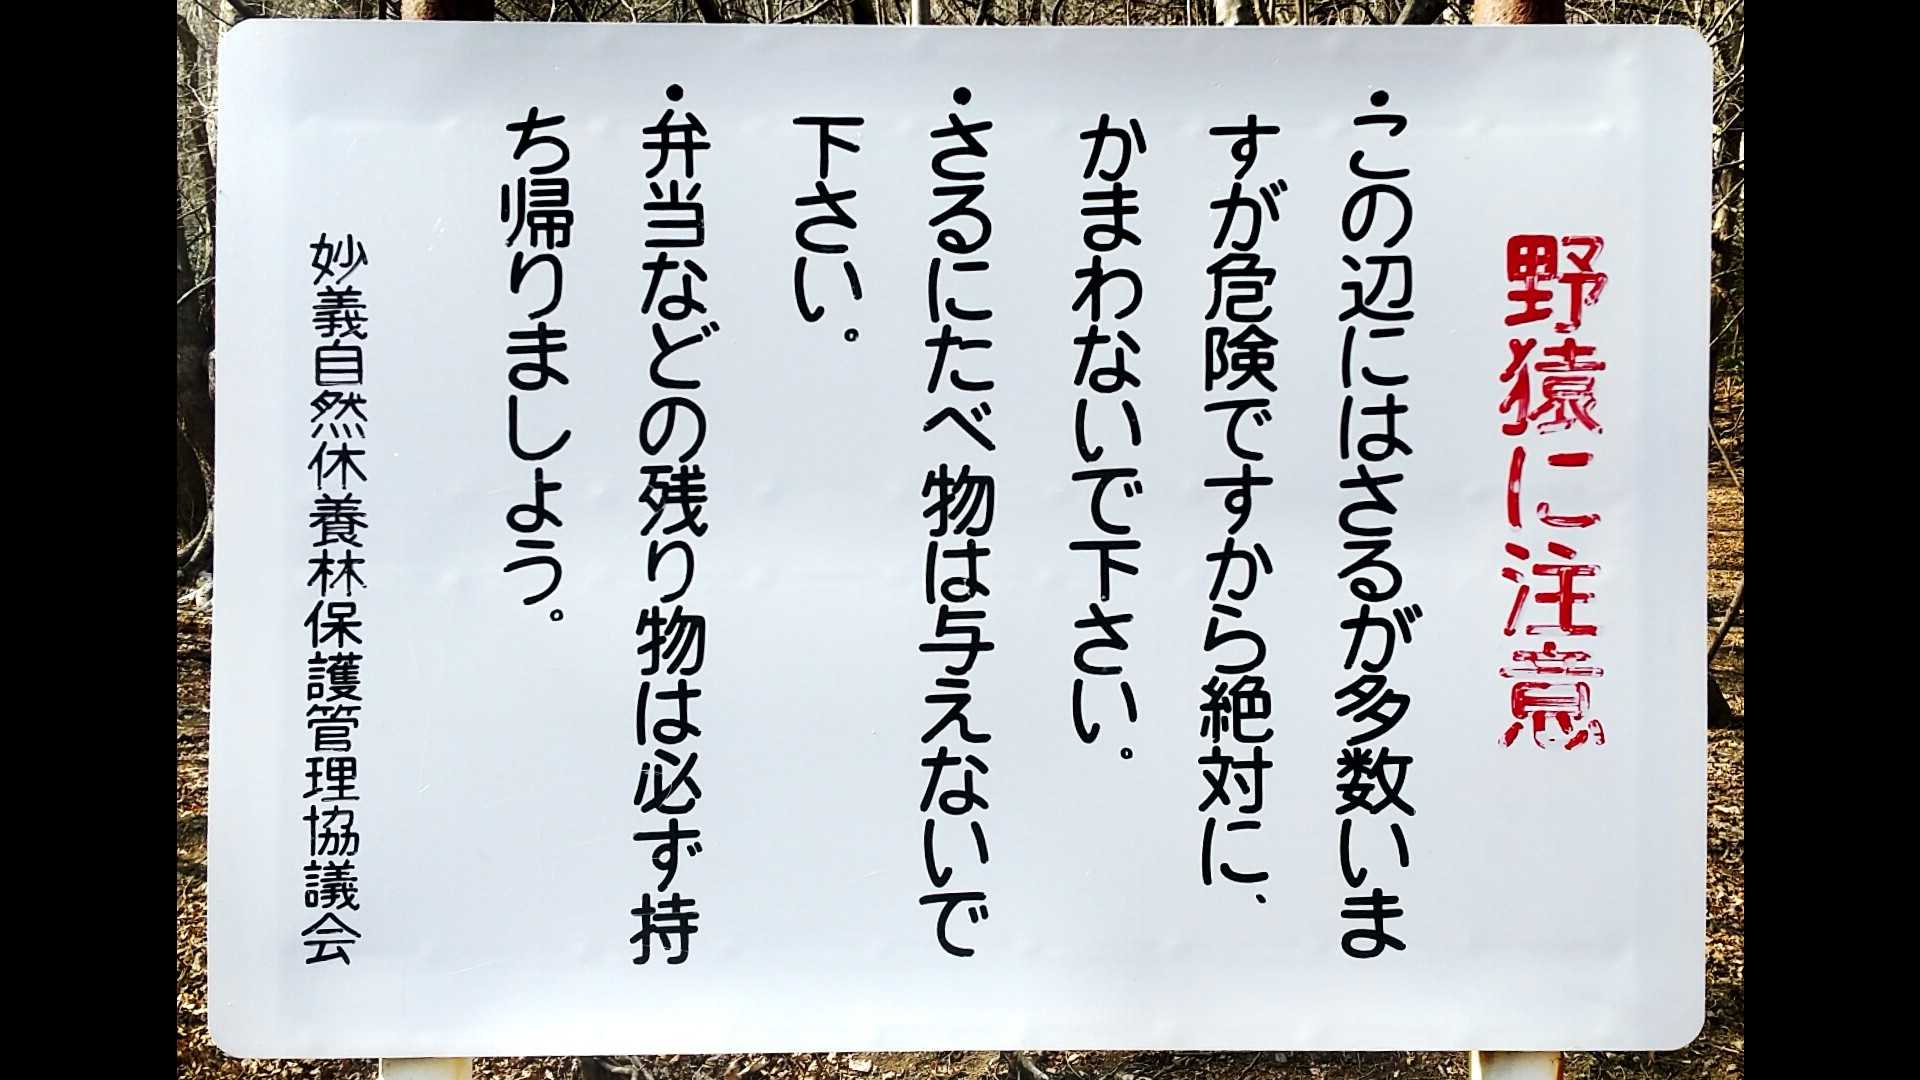 野猿に注意
・この辺にはさるが多数いま
すが危険ですから絶対に、
かまわないで下さい。
・さるにたべ物は与えないで
下さい。
・弁当などの残り物は必ず持
ち帰りましよう。
妙義自然休養林保護管理協議会